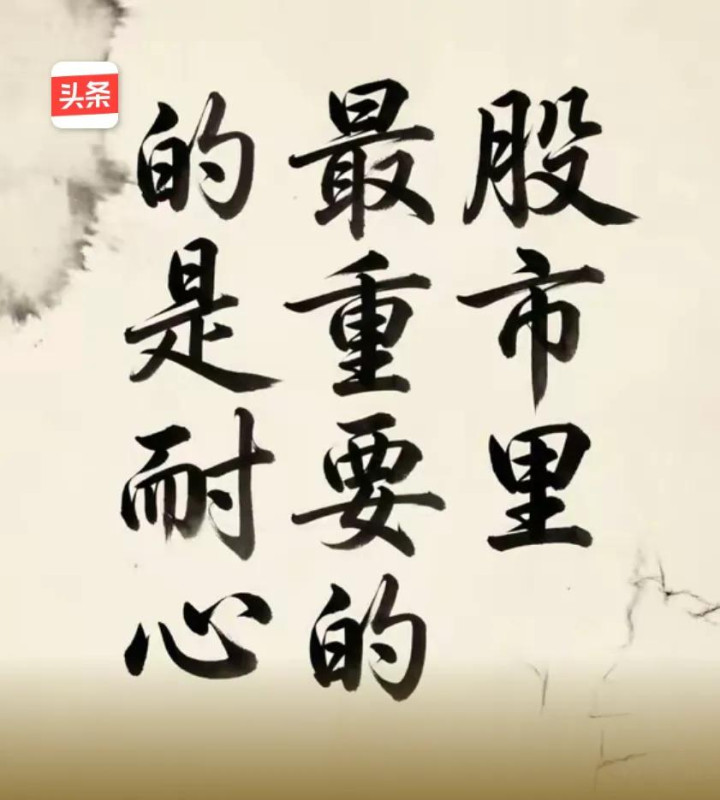 头条
股市里
最重要的
的是耐心